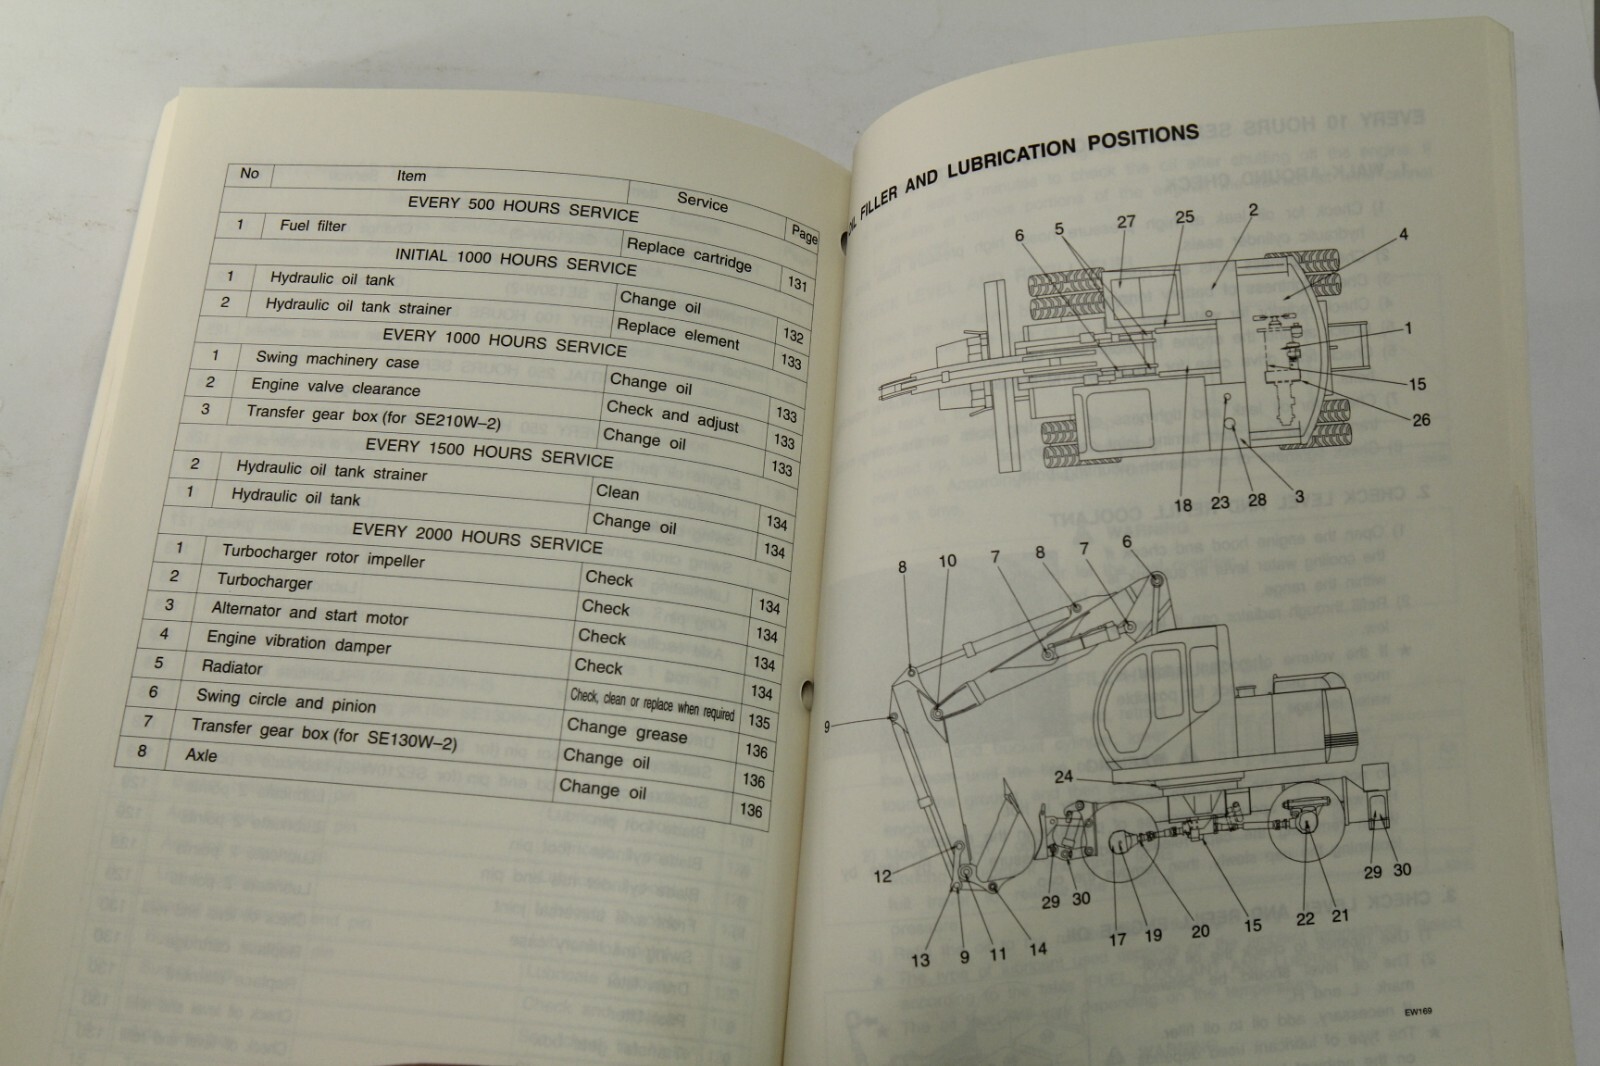 No Item Service Page
EVERY 500 HOURS SERVICE
1 Fuel filter Replace cartridge 131
INITIAL 1000 HOURS SERVICE
1 Hydraulic oil tank Change oil 132
2 Hydraulic oil tank strainer Replace element 133
EVERY 1000 HOURS SERVICE
1 Swing machinery case Change oil 133
2 Engine valve clearance Check and adjust 133
3 Transfer gear box (for SE210W–2) Change oil 133
EVERY 1500 HOURS SERVICE
2 Hydraulic oil tank strainer Clean 134
1 Hydraulic oil tank Change oil 134
EVERY 2000 HOURS SERVICE
1 Turbocharger rotor impeller Check 134
2 Turbocharger Check 134
3 Alternator and start motor Check 134
4 Engine vibration damper Check 134
5 Radiator Check, clean or replace when required 135
6 Swing circle and pinion Change grease 136
7 Transfer gear box (for SE130W–2) Change oil 136
8 Axle Change oil 136
OIL FILLER AND LUBRICATION POSITIONS
6 5 27 25 2
4
1
15
26
18 23 28 3
8 10 7 8 7 6
9
24
12
29 30
29 30
13 9 11 14
17 19 20 15 22 21
EW169